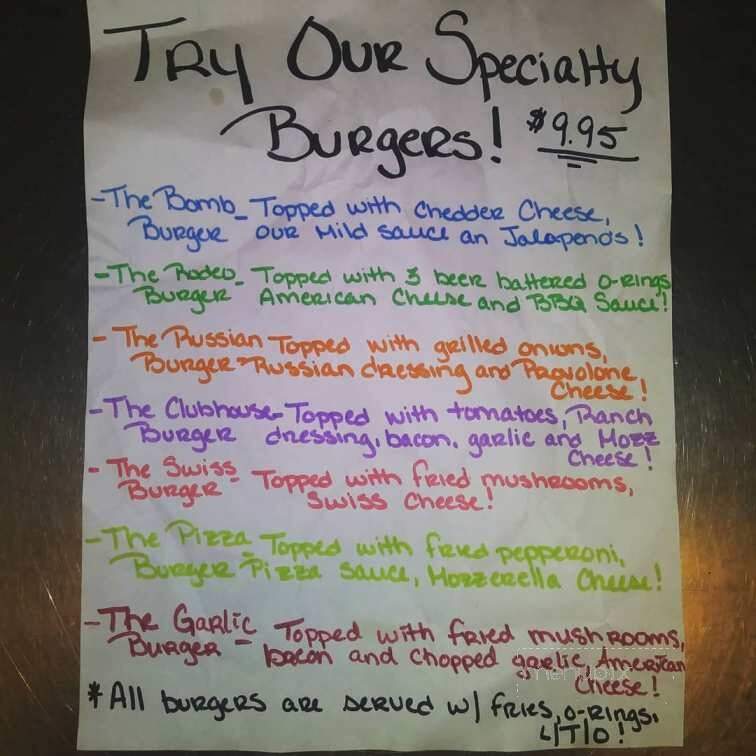 Try Our Specialty
Burgers! $9.95
-The Bomb - Topped with Chedder Cheese,
Burger our Mild sauce an Jalapeno's!
-The Rodeo - Topped with 3 beer battered O-rings
Burger American Cheese and BBQ Sauce!
-The Russian Topped with grilled onions,
Burger - Russian dressing and Provolone
Cheese!
-The Clubhouse - Topped with tomatoes, Ranch
Burger dressing, bacon, garlic and Mozz
Cheese!
-The Swiss - Topped with fried mushrooms,
Burger - Swiss Cheese!
-The Pizza - Topped with fried pepperoni,
Burger - Pizza Sauce, Mozzerella Cheese!
-The Garlic - Topped with fried mushrooms,
Burger - bacon and chopped garlic, American
Cheese!
*All burgers are served w/ fries, o-rings,
L/T/O!
menupix